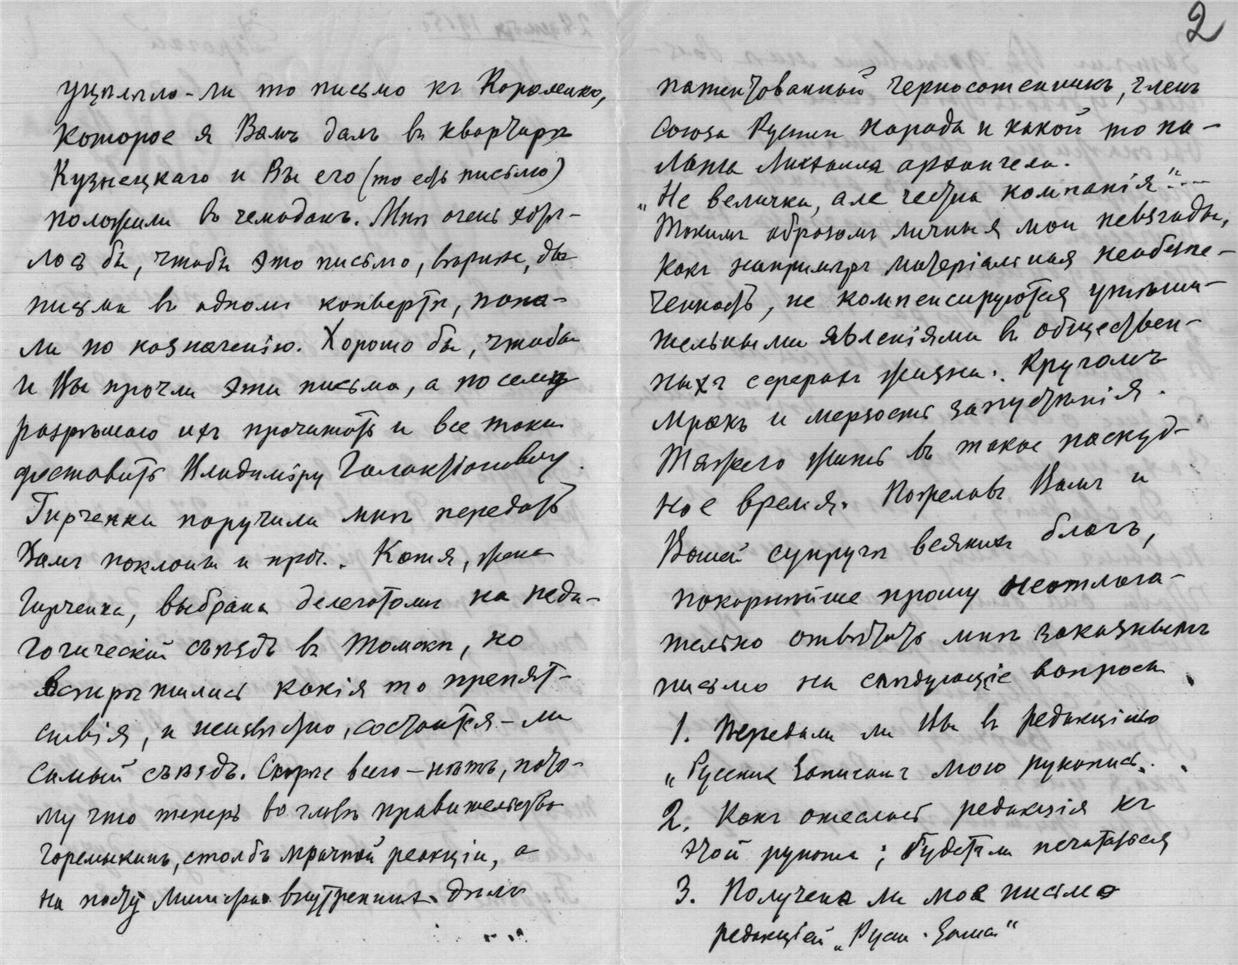 2
уцѣлѣло-ли то письмо къ Короленко,
которое я Вамъ далъ въ квартирѣ
Кузнецкаго и Вы его (то есть письмо)
положили въ чемоданъ. Мнѣ очень хотѣ-
лось бы, чтобы это письмо, вѣрнѣе, два
письма въ одномъ конвертѣ, попа-
ли по назначенію. Хорошо бы, чтобы
и Вы прочли эти письма, а посему
разрѣшаю ихъ прочитать и все таки
доставить Владиміру Галактіоновичу.
Гирченки поручили мнѣ передать
Вамъ поклоны и проч.. Катя, жена
Гирченка, выбрана делегатомъ на педа-
гогическій съѣздъ въ Томскѣ, но
встрѣтились какія то препят-
ствія, и неизвѣстно, состоится-ли
самый съѣздъ. Скорѣе всего – нѣтъ, пото-
му что теперь во главѣ правительства
Горемыкинъ, столбъ мрачной реакціи, а
на посту Министра внутреннихъ дѣлъ
патентованный черносотенникъ, членъ
Союза Русскаго Народа и какой то па-
латы Михаила архангела.
„Не величка, але честна компанія“...
Такимъ образомъ личныя мои невзгоды,
какъ напримѣръ матеріальная необезпе-
ченность, не компенсируются утѣши-
тельными явленіями въ обществен-
ныхъ сферахъ жизни. Кругомъ
мракъ и мерзость запустѣнія.
Тяжело жить въ такое паскуд-
ное время. Пожелавъ Вамъ и
Вашей супругѣ всякихъ благъ,
покорнѣйше прошу неотлага-
тельно отвѣтить мнѣ заказнымъ
письмо на слѣдующіе вопросы
1. Передали ли Вы въ редакцію
„Русскихъ Записокъ мою рукопись.
2. Какъ отнеслась редакція къ
этой рукописи; будетъ ли печататься
3. Получено ли мое письмо
редакціей „Русск. Запис.“